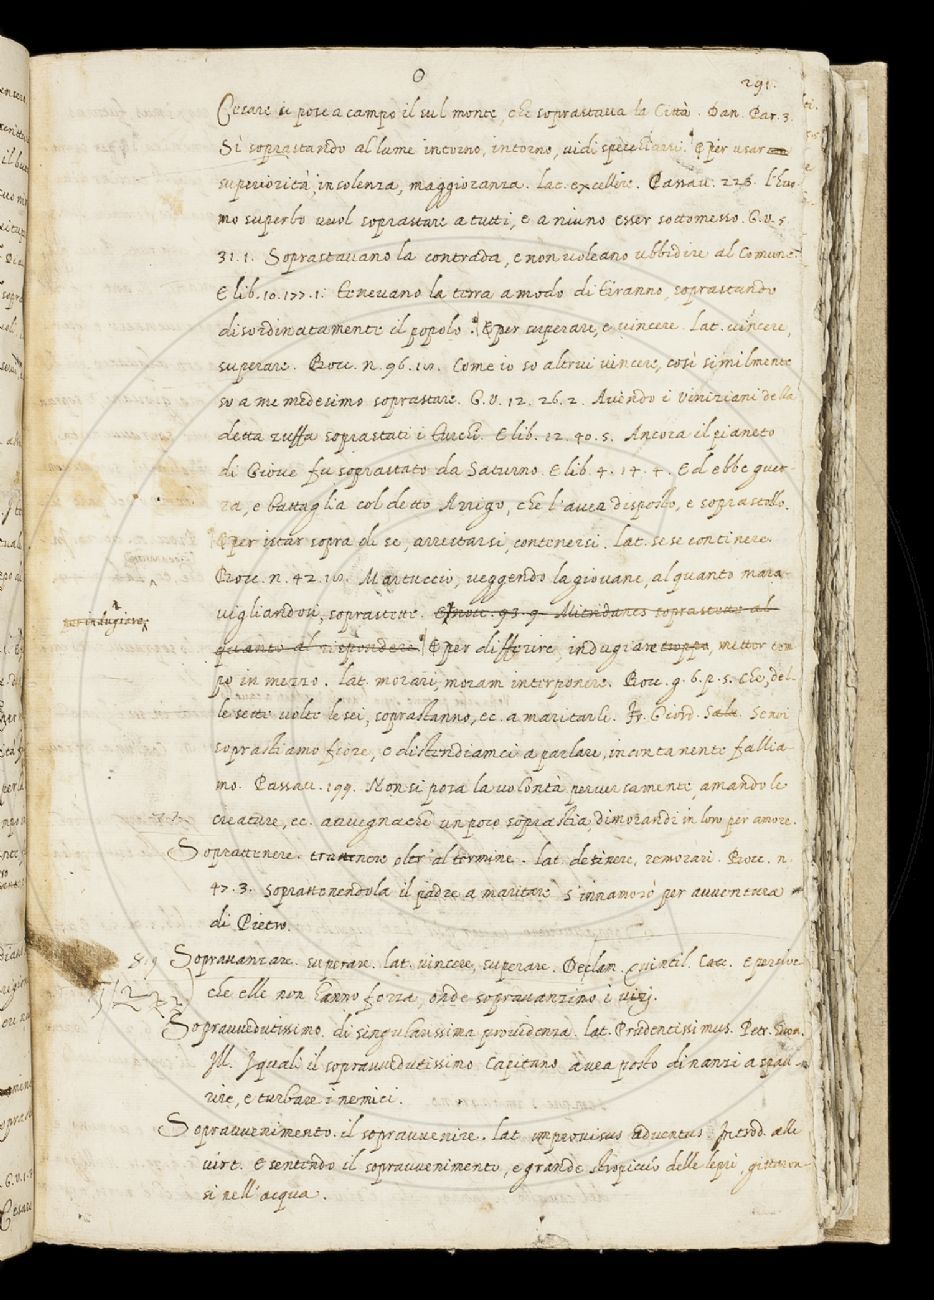 O
291.
Cesare si pose a campo il sul monte, che soprastava la Città. Dan. Par. 3.
Sì soprastando al lume intorno, intorno, vidi specchiarsi. E per usar
superiorità, insolenza, maggioranza. lat. excellere. Passav. 228. l'huo
mo superbo vuol soprastare a tutti, e a niuno esser sottomesso. G.V. 5.
31.1. Soprastavano la contrada, e non voleano ubbidire al Comune.
E lib. 10.177.1. tenevano la terra a modo di tiranno, soprastando
disordinatamente il popolo. E per superare, e vincere. lat. vincere,
superare. Bocc. n. 96.18. Come io so altrui vincere, così similmente
so a me medesimo soprastare. G.V. 12. 26.2. Avendo i Viniziani della
detta zuffa soprastati i Turchi. E lib. 12. 40.5. Ancora il pianeto
di Giove fu soprastato da Saturno. E lib. 4. 14. 4. Ed ebbe guer-
ra, e battaglia col detto Arrigo, che l'avea disposto, e soprastollo.
E per istar sopra di se, arrestarsi, contenersi. lat. se se continere.
Bocc. n. 42.18. Martuccio, veggendo la giovane, alquanto mara-
vigliandosi, soprastette. E nov. 93.9. Mitridanes soprastette al
per indugiare,
quanto al rispondere. E per differire, indugiare troppo, metter tem
po in mezzo. lat. morari, moram interponere. Bocc. g.6.p.5. Che, del-
le sette volte le sei, soprastanno, ec. a maritarle. Fr. Giord. Sala. Se noi
soprastiamo fiore, e distendiamci a parlare, incontanente fallia-
mo. Passav. 199. Non si posa la volontà perversamente, amando le
creature, ec. avvegnachè un poco soprastia dimorandi in loro per amore.
Soprattenere. trattenere oltr'al termine. lat. detinere, remorari. Bocc. n.
47.3. soprattenendola il padre a maritare s'innamorò per avventura
di Pietro.
819 Sopravanzare. superare. lat. vincere, superare. Declam. Quintil. Cace. E perciocc
che elle non hanno forza onde sopravanzino i vizj.
Sopravvedutissimo. di singularissima providenza. lat. Prudentissimus. Petr. Huom.
Ill. I quali il sopravvedutissimo Capitano avea posto dinanzi a spau-
rire, e turbare i nemici.
Sopravvenimento. il sopravvenire. lat. improvisus adventus. Introd. alle
virt. E sentendo il sopravvenimento, e grande stropiccio delle lepri, gittaron
si nell'acqua.